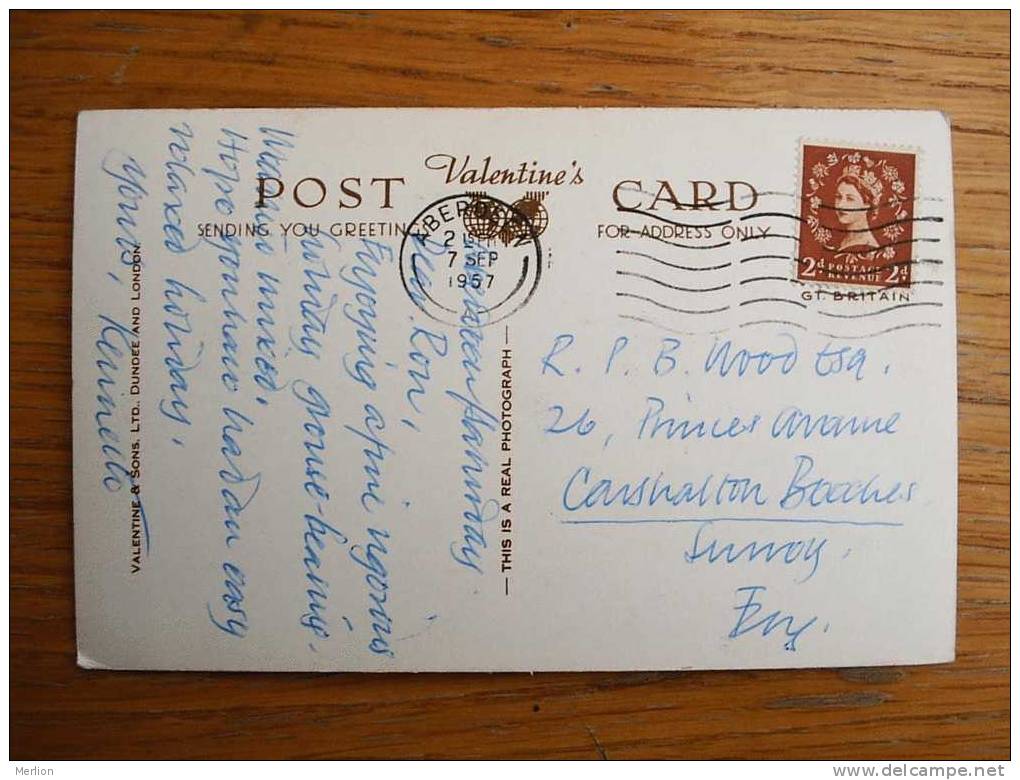 POST
Valentine's
CARD
SENDING YOU GREETING
FOR ADDRESS ONLY
ABERDEEN
7 SEP
1957
2d POSTAGE REVENUE 2d
GT. BRITAIN
VALENTINE & SONS, LTD., DUNDEE AND LONDON
THIS IS A REAL PHOTOGRAPH
Dear Ron,
Enjoying a
grouse-beating.
Weather mixed,
Hope you have had an easy
relaxed holiday.
Yours, Kenneth
R. P. B. Wood Esq.
26, Princes Avenue
Carshalton Beeches
Surrey.
Eng.
Merlion
www.delcampe.net